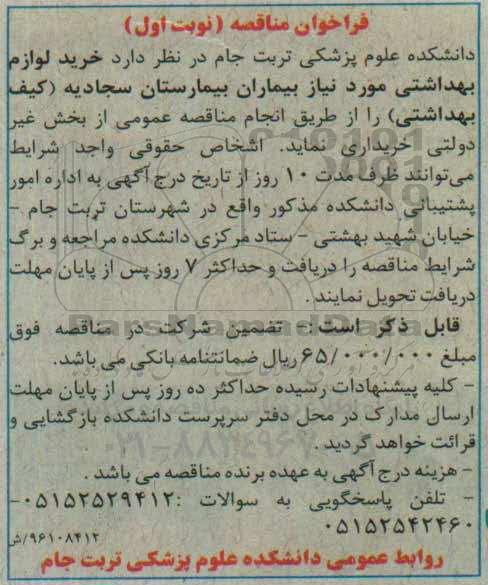 فراخوان مناقصه (نوبت اول)
دانشکده علوم پزشکی تربت جام در نظر دارد خرید لوازم
بهداشتی مورد نیاز بیماران بیمارستان سجادیه (کیف
بهداشتی) را از طریق انجام مناقصه عمومی از بخش غیر
دولتی خریداری نماید. اشخاص حقوقی واجد شرایط
می‌توانند ظرف مدت ۱۰ روز از تاریخ درج آگهی به اداره امور
پشتیبانی دانشکده مذکور واقع در شهرستان تربت جام -
خیابان شهید بهشتی - ستاد مرکزی دانشکده مراجعه و برگ
شرایط مناقصه را دریافت و حداکثر ۷ روز پس از پایان مهلت
دریافت تحویل نمایند.
قابل ذکر است:- تضمین شرکت در مناقصه فوق
مبلغ ۶۵/۰۰۰/۰۰۰ ریال ضمانتنامه بانکی می باشد.
- کلیه پیشنهادات رسیده حداکثر ده روز پس از پایان مهلت
ارسال مدارک در محل دفتر سرپرست دانشکده بازگشایی و
قرائت خواهد گردید.
- هزینه درج آگهی به عهده برنده مناقصه می باشد.
- تلفن پاسخگویی به سوالات :۰۵۱۵۲۵۲۹۴۱۲-
۰۵۱۵۲۵۴۲۴۶۰
۹۶۱۰۸۴۱۲/ش
روابط عمومی دانشکده علوم پزشکی تربت جام
ParsNamadData
۰۲۱-۸۸۳۴۹۶۷۰